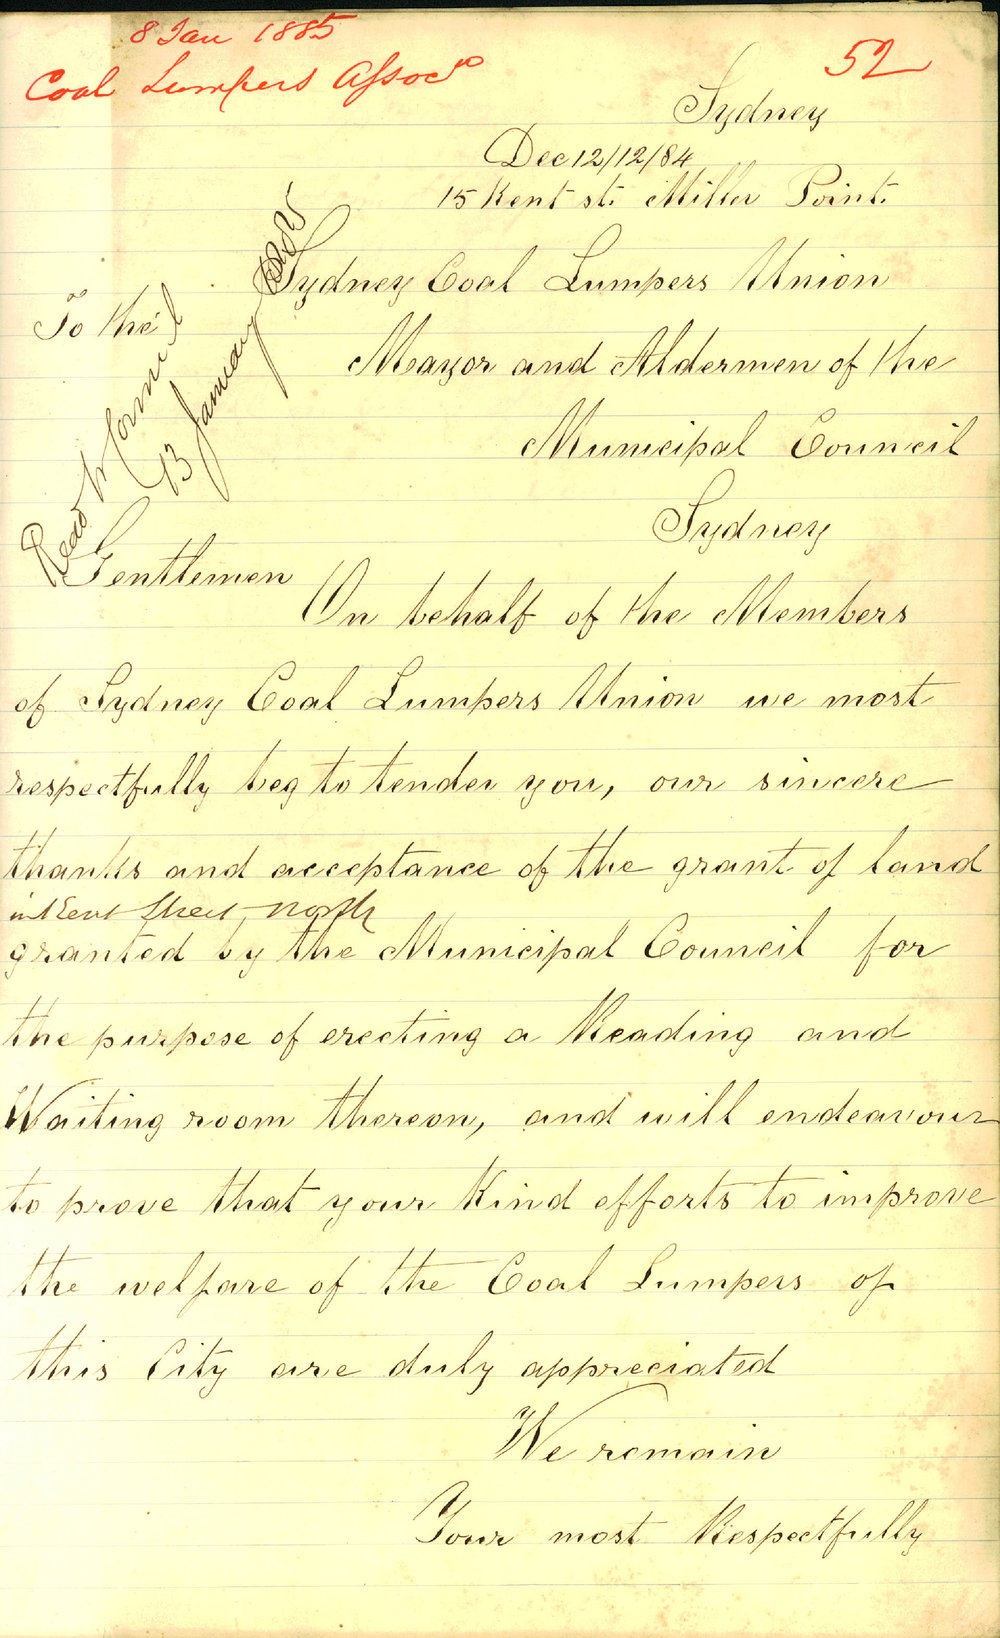 8 Jan 1885
52
Coal Lumpers Assocn
Sydney
Dec 12/12/84
15 Kent st. Miller Point.
Sydney Coal Lumpers Union
To the
Mayor and Aldermen of the
Municipal Council
Sydney
Read to Council
13 January 1885
Gentlemen
On behalf of the Members
of Sydney Coal Lumpers Union we most
respectfully beg to tender you, our sincere
thanks and acceptance of the grant of land
in Kent Street North
granted by the Municipal Council for
the purpose of erecting a Reading and
Waiting room thereon, and will endeavour
to prove that your Kind efforts to improve
the welfare of the Coal Lumpers of
this City are duly appreciated
We remain
Your most Respectfully